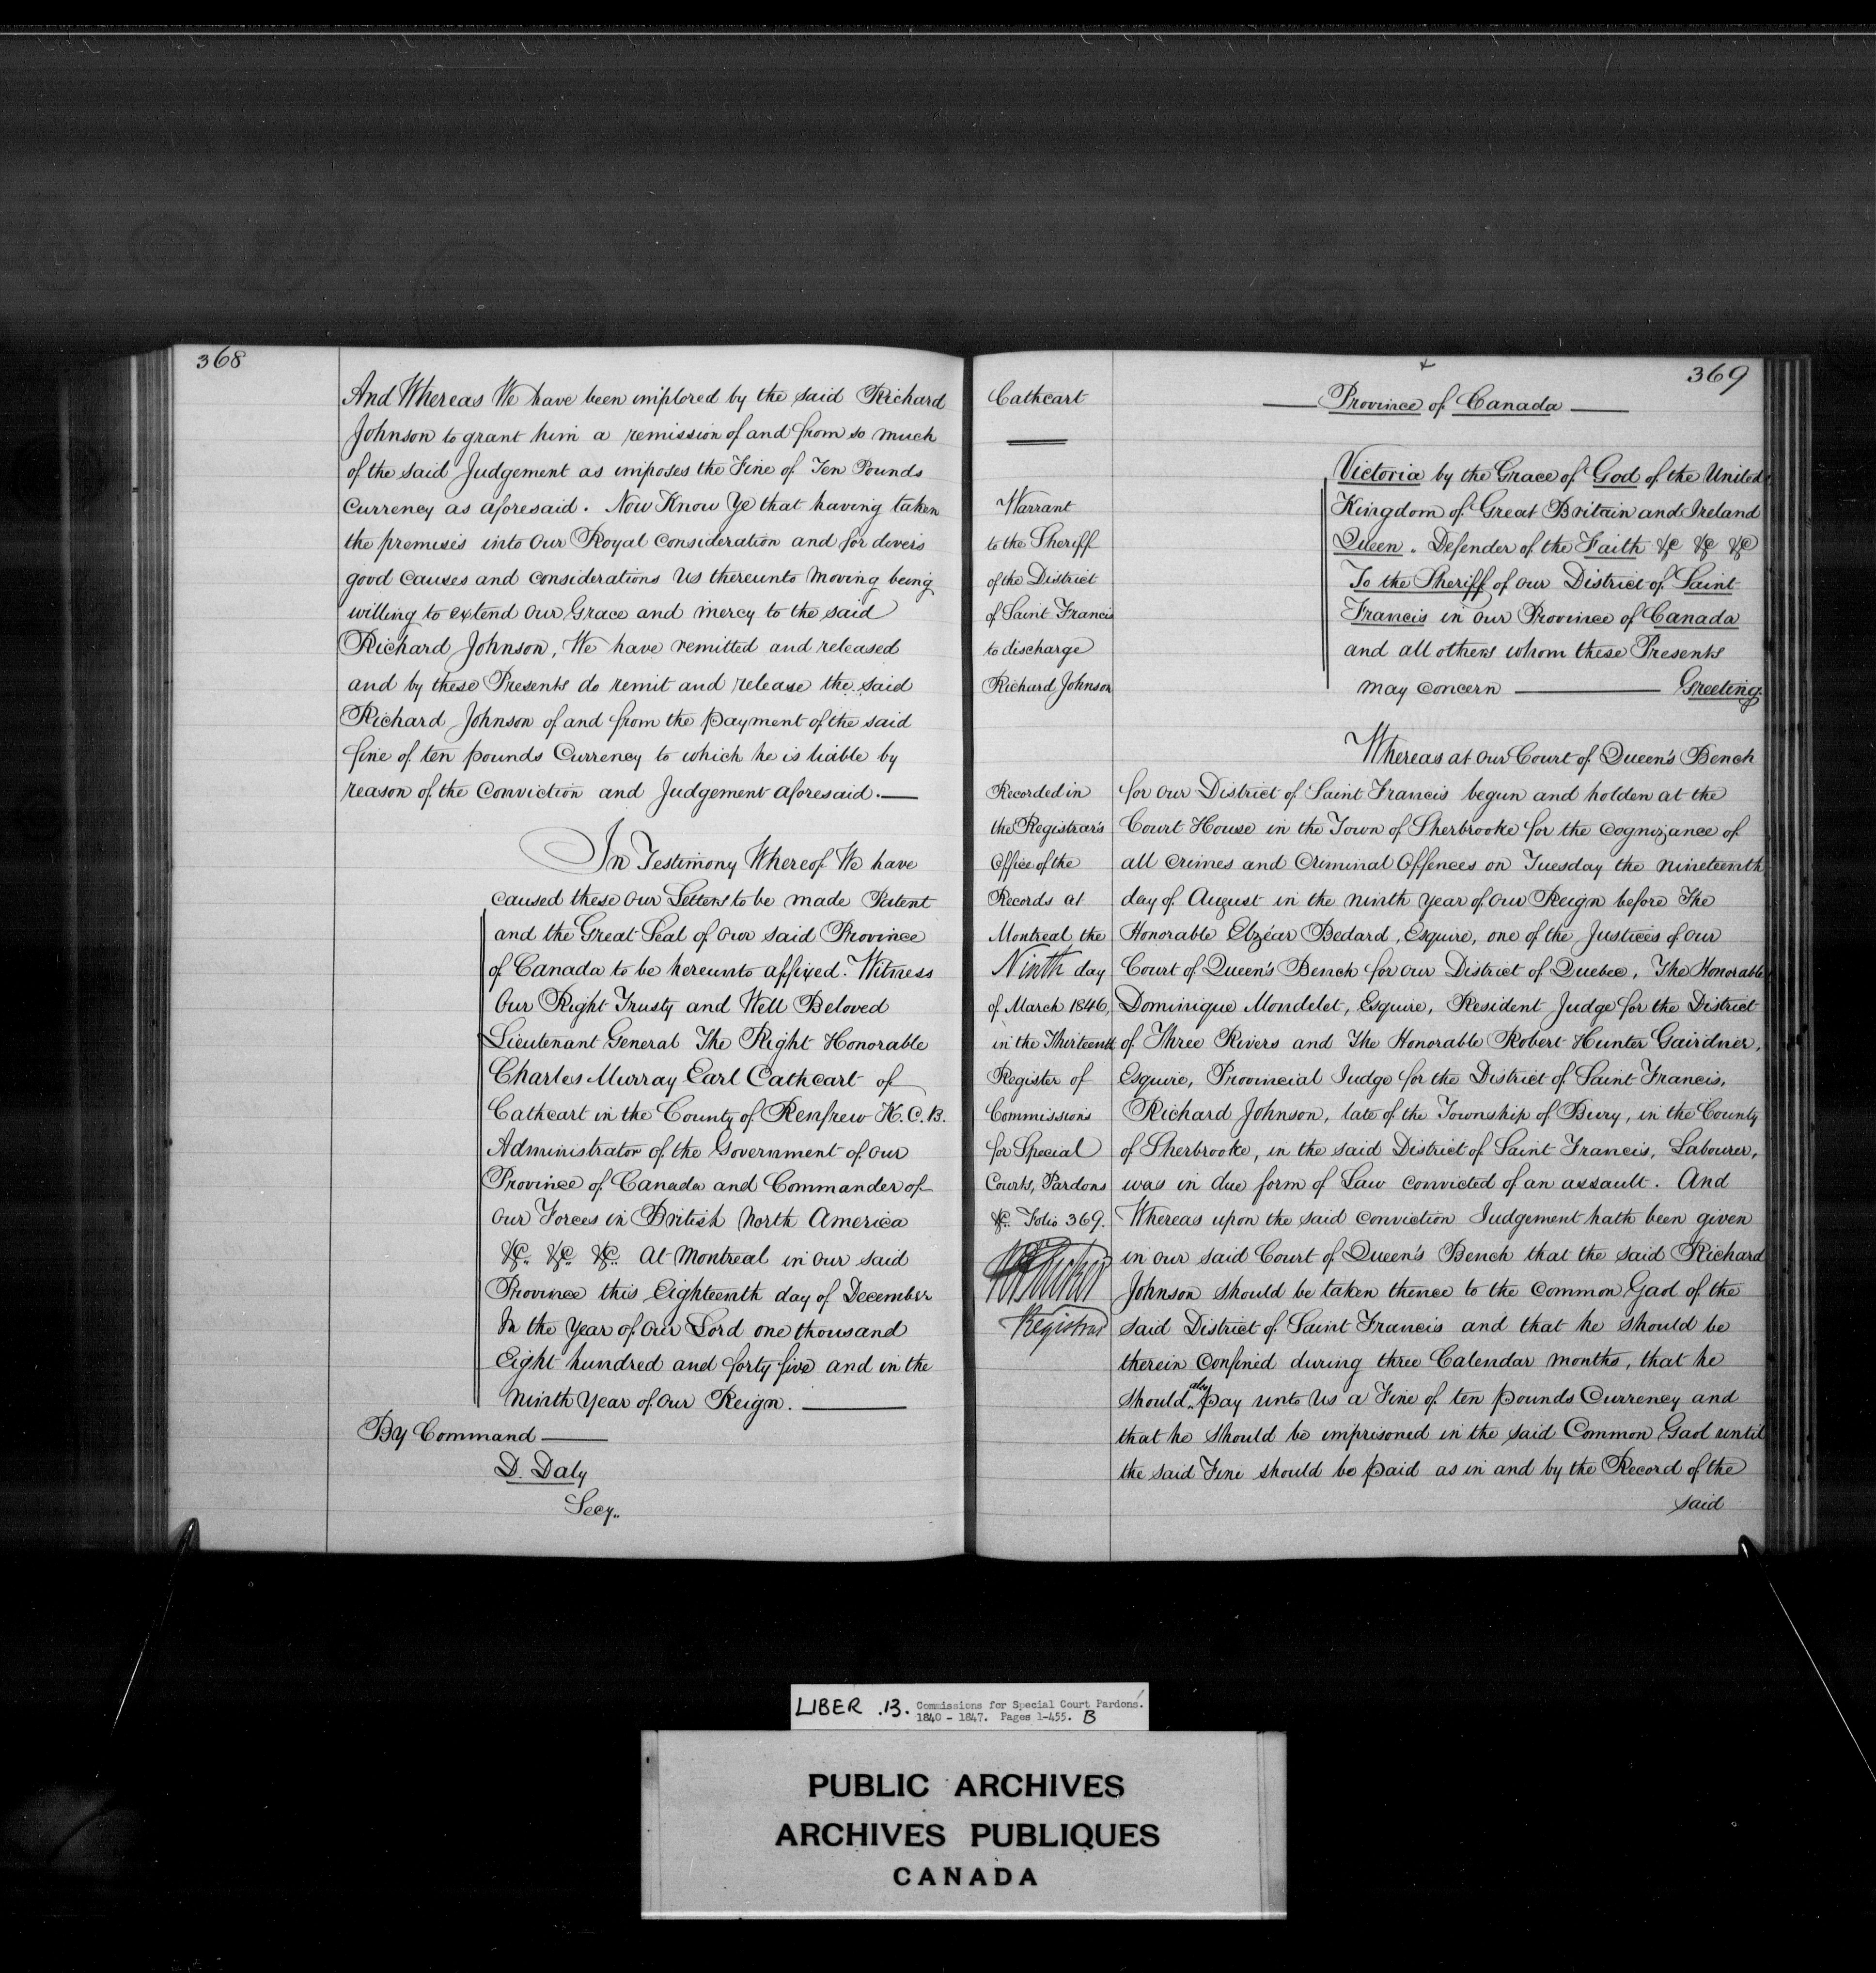 368
And Whereas We have been implored by the said Richard
Johnson to grant him a remission of and from so much
of the said Judgement as imposes the Fine of Ten Pounds
Currency as aforesaid. Now Know Ye that having taken
the premises into Our Royal Consideration and for divers
good Causes and considerations Us thereunto moving being
willing to extend Our Grace and mercy to the said
Richard Johnson, We have remitted and released
and by these Presents do remit and release the said
Richard Johnson of and from the payment of the said
fine of ten pounds Currency to which he is liable by
reason of the Conviction and Judgement aforesaid.—
In Testimony Whereof We have
caused these Our Letters to be made Patent
and the Great Seal of Our said Province
of Canada to be hereunto affixed. Witness
Our Right Trusty and Well Beloved
Lieutenant General The Right Honorable
Charles Murray Earl Cathcart of
Cathcart in the County of Renfrew K.C.B.
Administrator of the Government of Our
Province of Canada and Commander of
Our Forces in British North America
&c &c &c. At Montreal in Our said
Province this Eighteenth day of December
In the Year of Our Lord one thousand
Eight hundred and forty five and in the
Ninth Year of Our Reign. —
By Command —
D. Daly
Secy.
369
Cathcart
Warrant
to the Sheriff
of the District
of Saint Francis
to discharge
Richard Johnson
Recorded in
the Registrar's
Office of the
Records at
Montreal the
Ninth day
of March 1846,
in the Thirteenth
Register of
Commissions
for Special
Courts, Pardons
&c. Folio 369.
Registrar
— Province of Canada —
Victoria by the Grace of God of the United
Kingdom of Great Britain and Ireland
Queen. Defender of the Faith &c &c &c
To the Sheriff of Our District of Saint
Francis in Our Province of Canada
and all others whom these Presents
may concern — Greeting
Whereas at Our Court of Queen's Bench
for Our District of Saint Francis begun and holden at the
Court House in the Town of Sherbrooke for the Cognizance of
all Crimes and Criminal Offences on Tuesday the nineteenth
day of August in the Ninth Year of Our Reign before The
Honorable Elzéar Bedard, Esquire, one of the Justices of Our
Court of Queen's Bench for Our District of Quebec, The Honorable
Dominique Mondelet, Esquire, Resident Judge for the District
of Three Rivers and The Honorable Robert Hunter Gairdner,
Esquire, Provincial Judge for the District of Saint Francis,
Richard Johnson, late of the Township of Bury, in the County
of Sherbrooke, in the said District of Saint Francis, Labourer,
was in due form of Law Convicted of an assault. And
Whereas upon the said conviction Judgement hath been given
in Our said Court of Queen's Bench that the said Richard
Johnson should be taken thence to the Common Gaol of the
said District of Saint Francis and that he should be
therein Confined during three Calendar months, that he
should also pay unto Us a Fine of ten pounds Currency and
that he should be imprisoned in the said Common Gaol until
the said Fine should be paid as in and by the Record of the
said
LIBER .B. Commissions for Special Court Pardons.
1840 - 1847. Pages 1-455. B
PUBLIC ARCHIVES
ARCHIVES PUBLIQUES
CANADA